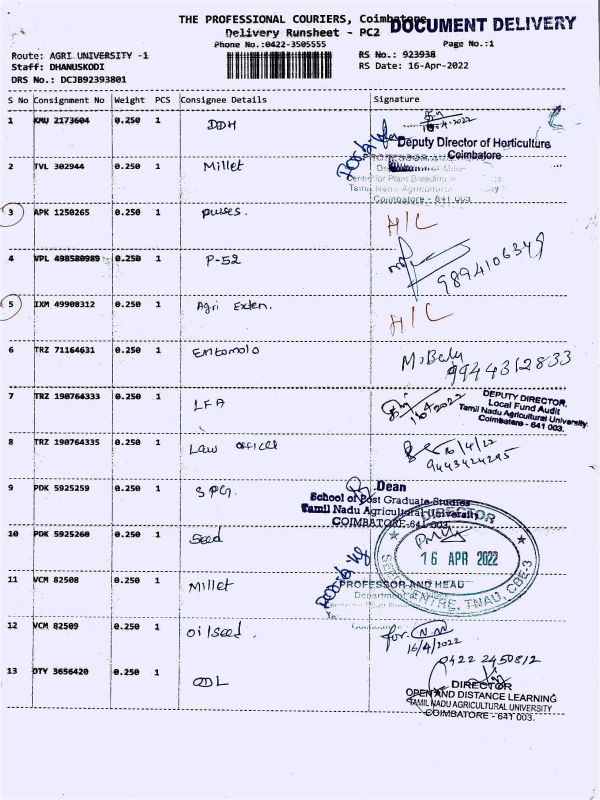 THE PROFESSIONAL COURIERS, Coimbatore
DOCUMENT DELIVERY
Delivery Runsheet - PC2
Phone No.:0422-3505555
Page No.:1
Route: AGRI UNIVERSITY -1
RS No.: 923938
Staff: DHANUSKODI
RS Date: 16-Apr-2022
DRS No.: DCJB92393801
S No Consignment No Weight PCS Consignee Details Signature
1 KMU 2173604 0.250 1 DDH
16.4.2022
Deputy Director of Horticulture
Coimbatore
2 TVL 302944 0.250 1 Millet
PROFESSOR AND
Centre for Plant Breeding
Tamil Nadu Agricultural
Coimbatore - 641 003
3 APK 1250265 0.250 1 pulses.
H/C
4 VPL 498580989 0.250 1 P-52
9894106349
5 IXM 49908312 0.250 1 Agri Exten.
H/C
6 TRZ 71164631 0.250 1 Entomolo
9944312833
7 TRZ 190764333 0.250 1 LFA
16/4/2022
DEPUTY DIRECTOR,
Local Fund Audit
Tamil Nadu Agricultural University
Coimbatore - 641 003.
8 TRZ 190764335 0.250 1 Law officer
16/4/22
9443424295
9 PDK 5925259 0.250 1 SPG.
Dean
School of Post Graduate Studies
Tamil Nadu Agricultural University
COIMBATORE-641 003.
10 PDK 5925260 0.250 1 Seed
DIRECTOR
16 APR 2022
SEED CENTRE, TNAU, CBE-3
11 VCM 82508 0.250 1 Millet
PROFESSOR AND HEAD
Department of Millets
Centre for Plant Breeding
12 VCM 82509 0.250 1 oilseed.
for.
16/4/2022
13 OTY 3656420 0.250 1 ODL
0422 2450812
DIRECTOR
OPEN AND DISTANCE LEARNING
TAMIL NADU AGRICULTURAL UNIVERSITY
COIMBATORE - 641 003.